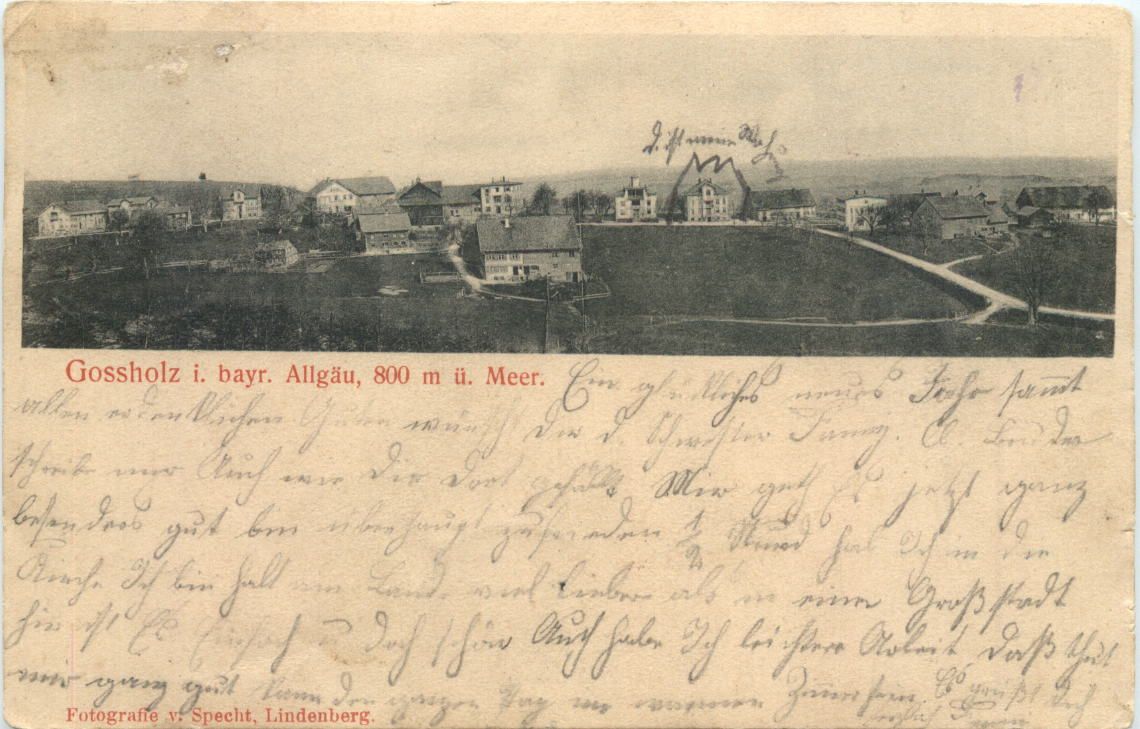 d. ist meine
Gossholz i. bayr. Allgäu, 800 m ü. Meer.
Ein glückliches neues Jahr sammt
allen erdenklichen Guten wünscht Dir d. Schwester Fanny. Lb. Bruder
schreibe mir Auch wie Dir dort gefällt Mir geth Es jetzt ganz
besonders gut bin überhaupt zufrieden 1/2 Stund hab Ich in die
Kirche Ich bin halt am Land viel lieber als in einer Großstadt
hir ist Es Einfach u doch schön Auch habe Ich leichtere Arbeit Daß thut
mir ganz gut kann den ganzen Tag im warmen Zimmer sein. Es grüßt Dich
herzlich
Fotografie v. Specht, Lindenberg.